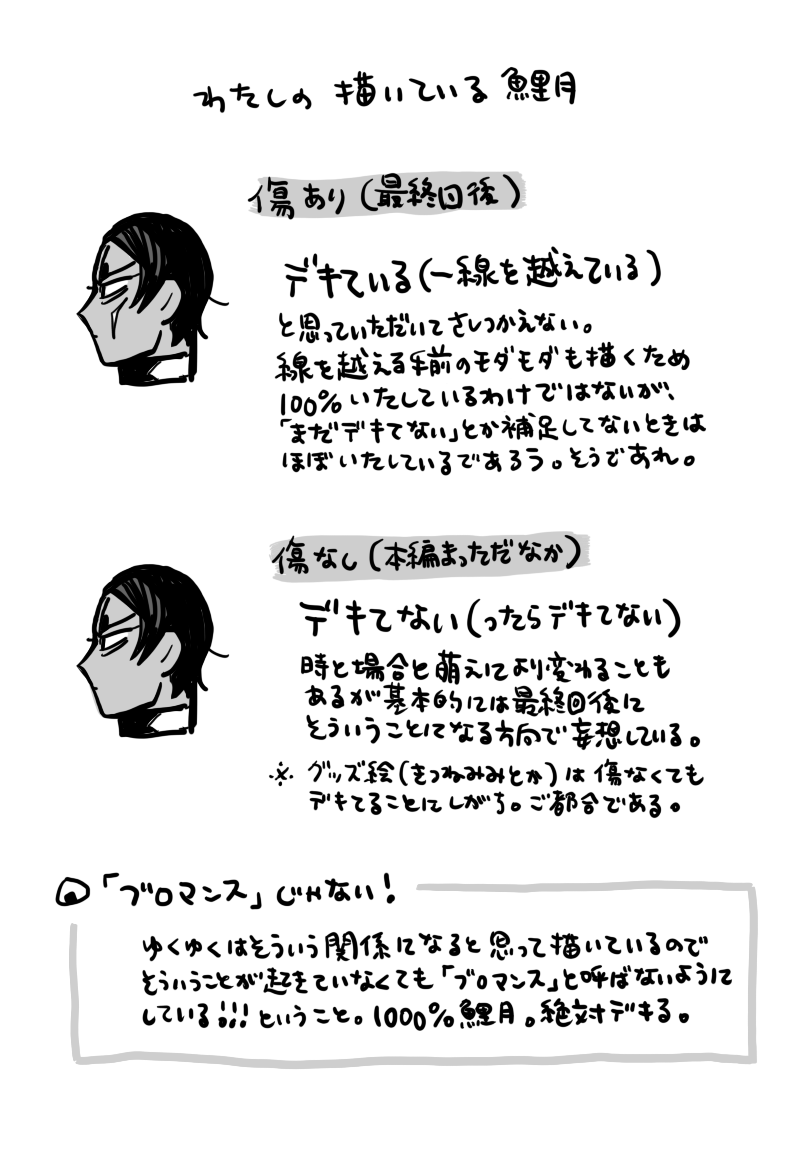 わたしの 描いている 鯉月
傷あり(最終回後)
デキている(一線を越えている)
と思っていただいてさしつかえない。
線を越える手前のモダモダも描くため
100%いたしているわけではないが、
「まだデキてない」とか補足してないときは
ほぼいたしているであろう。そうであれ。
傷なし(本編まっただなか)
デキてない(ったらデキてない)
時と場合と萌えにより変わることも
あるが基本的には最終回後に
そういうことになる方向で妄想している。
※ グッズ絵(きつねみみとか)は傷なくても
デキてることにしがち。ご都合である。
「ブロマンス」じゃない!
ゆくゆくはそういう関係になると思って描いているので
そういうことが起きていなくても「ブロマンス」と呼ばないように
している!!!ということ。1000%鯉月。絶対デキる。